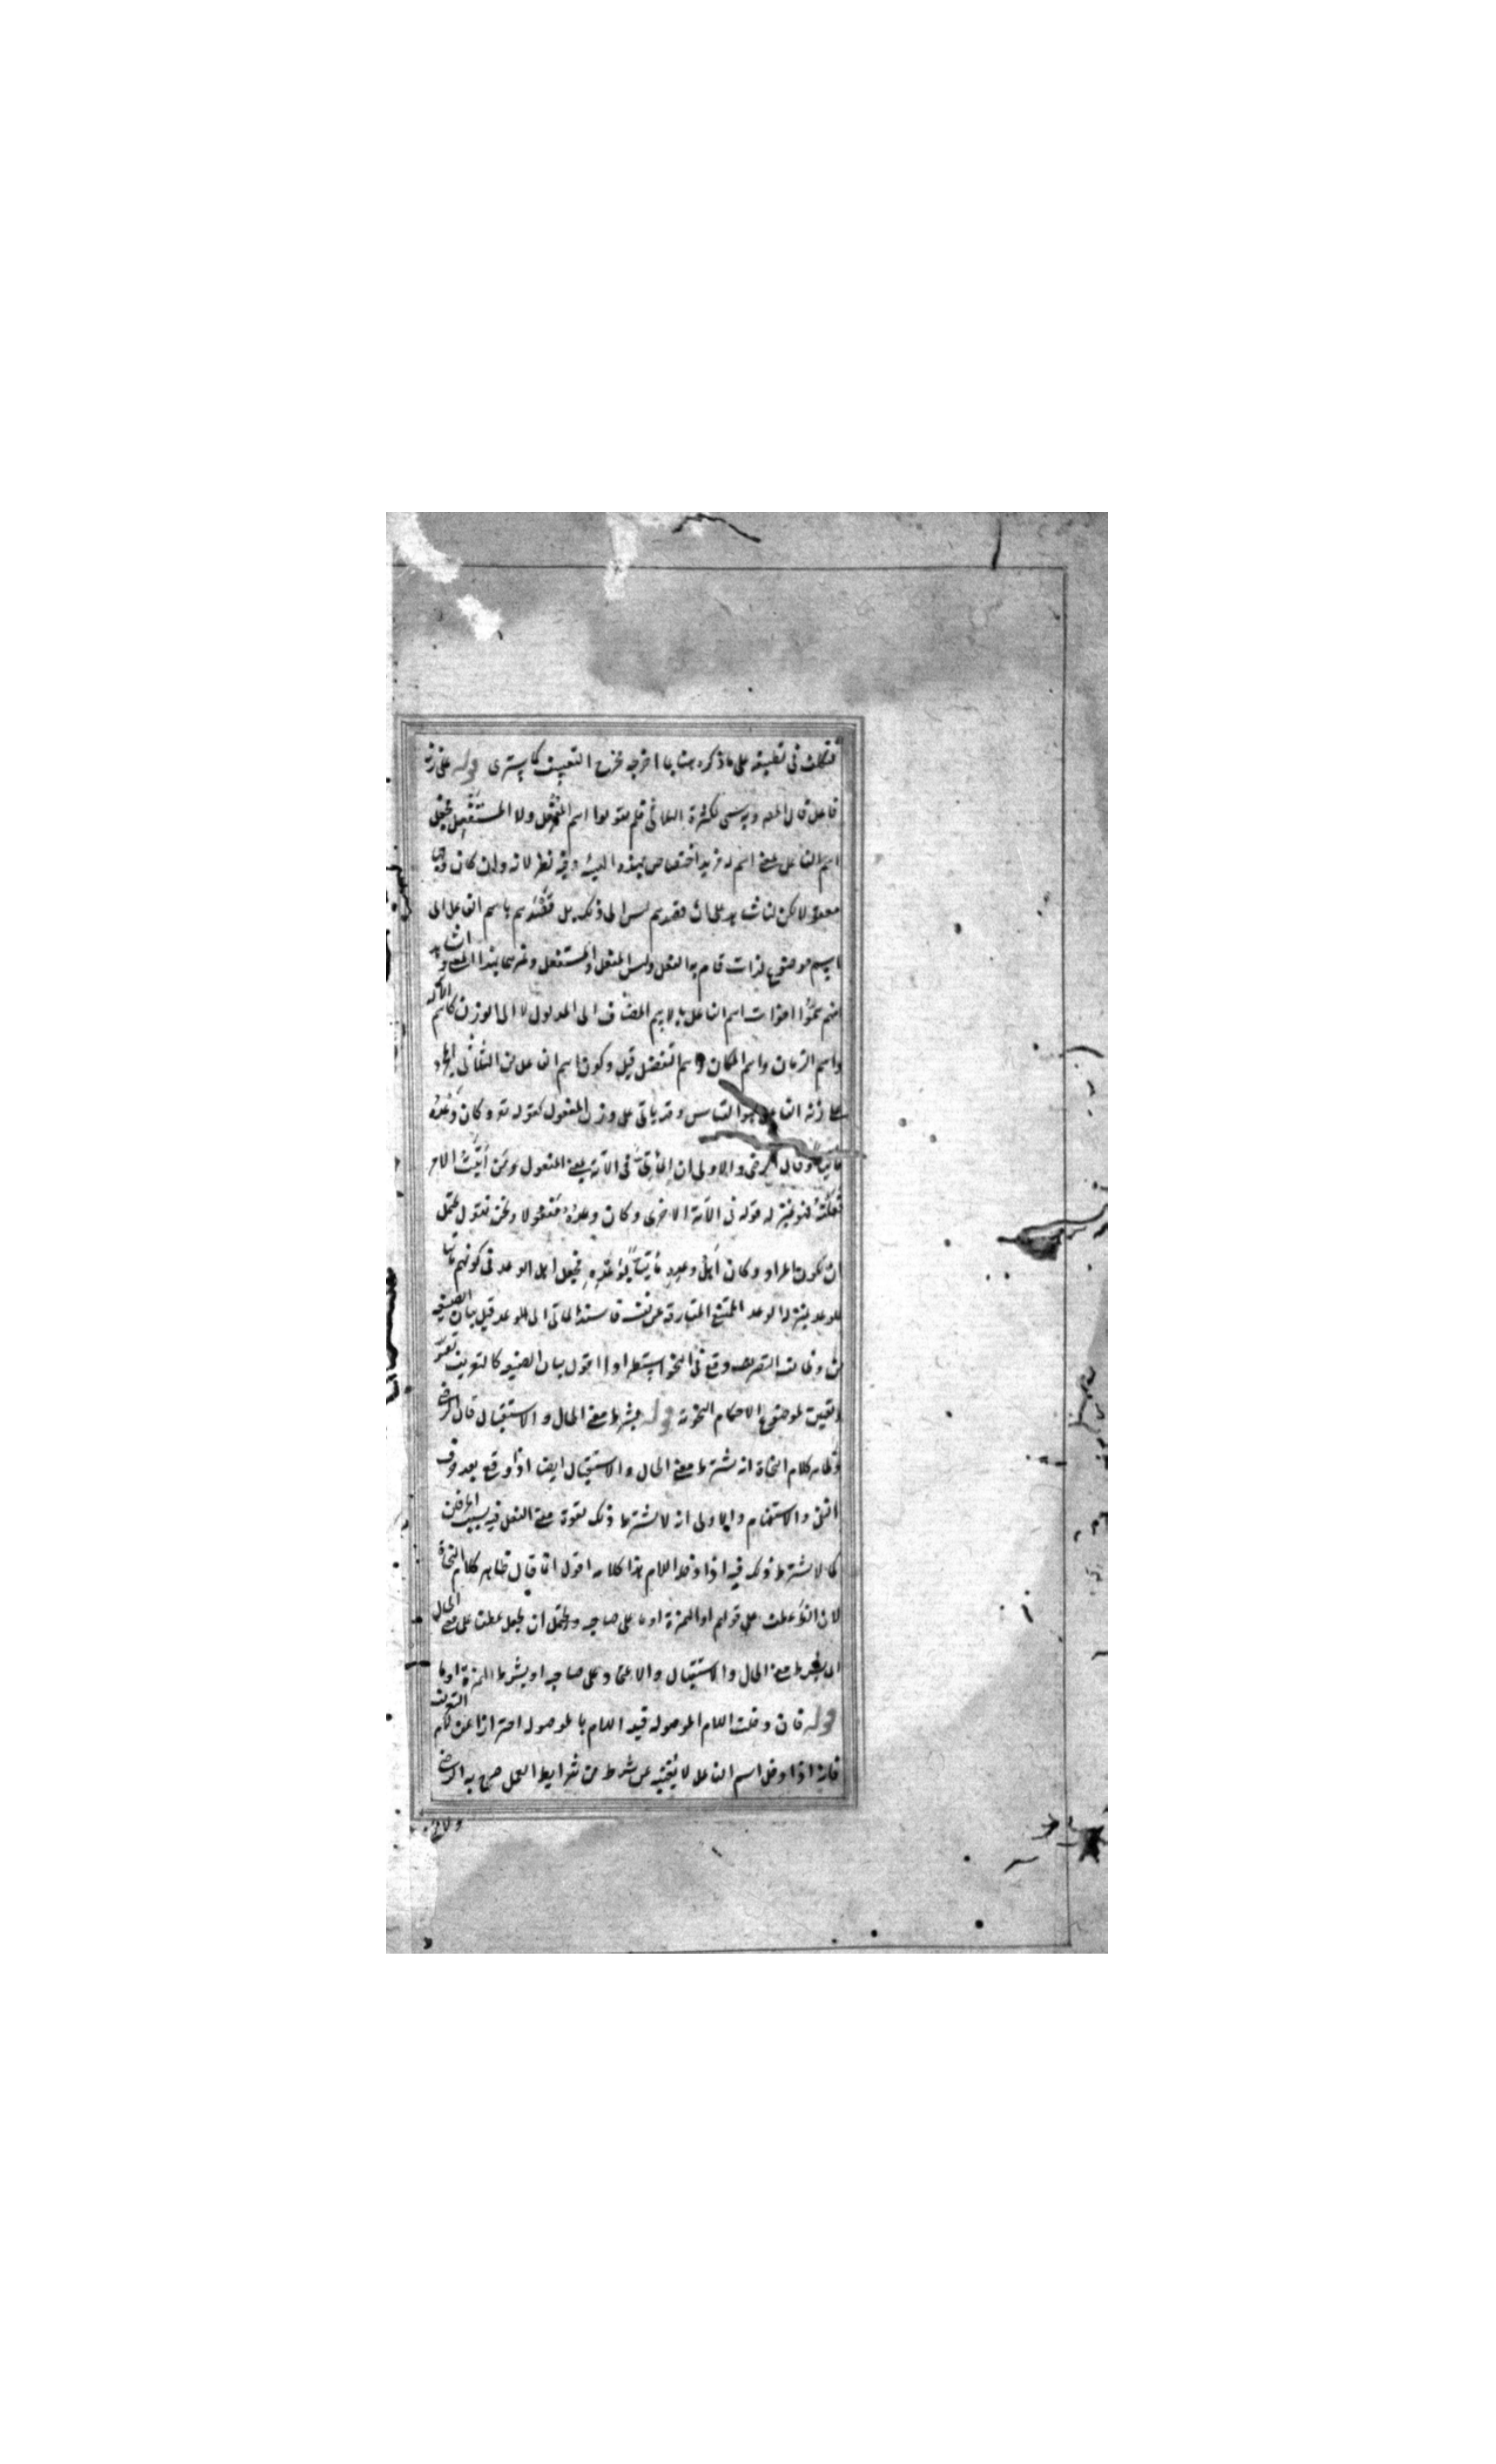 فتكلف في تطبيقه على ما ذكره هشاما اخرجه مخرج التعسف كما سترى قوله على زنة
فاعل قال المصه وبه سمى لكثرة الثلاثي فلم يقولوا اسم المفعل ولا المستفعل يجعل
اسم الفاعل بمعنى اسم له مزيد اختصاص بهذه الهيئة وفيه نظر لانه وان كان وجها
معدة لا لكن لنا شاهد على ان قصدهم ليس الى ذلك بل قصدهم باسم الفاعل الى
اسم موضوع لذات قام به الفعل وليس المفعل والمستفعل وغيرهما بهذا المعنى والشاهد
انهم سموا اخوات اسم الفاعل بالاسم المضاف الى المدلول لا الى الوزن كاسم الآلة
واسم الزمان واسم المكان واسم التفضيل قيل وكون اسم الفاعل من الثلاثي المجرد
على زنة الفاعل هو القياس وقد ياتي على وزن المفعول كقوله تع وكان وعده
مأتيا وقال الرضي والاولى ان المأتي في الآية بمعنى المفعول ومن اتيت الامر
فعلته فنوفيه له قوله في الآية الاخرى وكان وعده مفعولا ونحن نقول يحتمل
ان يكون المراد وكان اهل وعده مأتيا يوعده فجعل اهل الوعد في كونهم مأتيا
للوعد بمنزلة الوعد الممتنع المفارقة عن نفسه فاسند المأتي الى الوعد قيل بيان الصيغة
من وظائف التصريف وقع في النحو استطرادا اقول بيان الصيغة كالتعريف تعين
وتعيين لموضوع الاحكام النحوية قوله بشرط معنى الحال والاستقبال قال الرضي
وظاهر كلام النحاة انه يشترط معنى الحال والاستقبال ايضا اذا وقع بعد حرف
النفي والاستفهام والاولى انه لا يشترط ذلك لقوة معنى الفعل فيه بسبب الحرفين
كما لا يشترط ذلك فيه اذا دخله اللام هذا كلامه اقول انما قال ظاهر كلام النحاة
لان الظ عطف على قولهم او الهمزة او ما على صاحبه ويحتمل ان يجعل عطف على معنى الحال
اي بشرط معنى الحال والاستقبال والاعتماد على صاحبه او بشرط الهمزة او ما
قوله فان دخلت اللام الموصولة قيد اللام بالموصولة احترازا عن لام التعريف
فانه اذا دخل اسم الفاعل لا يغنيه عن شرط من شرايط العمل صرح به الرضي